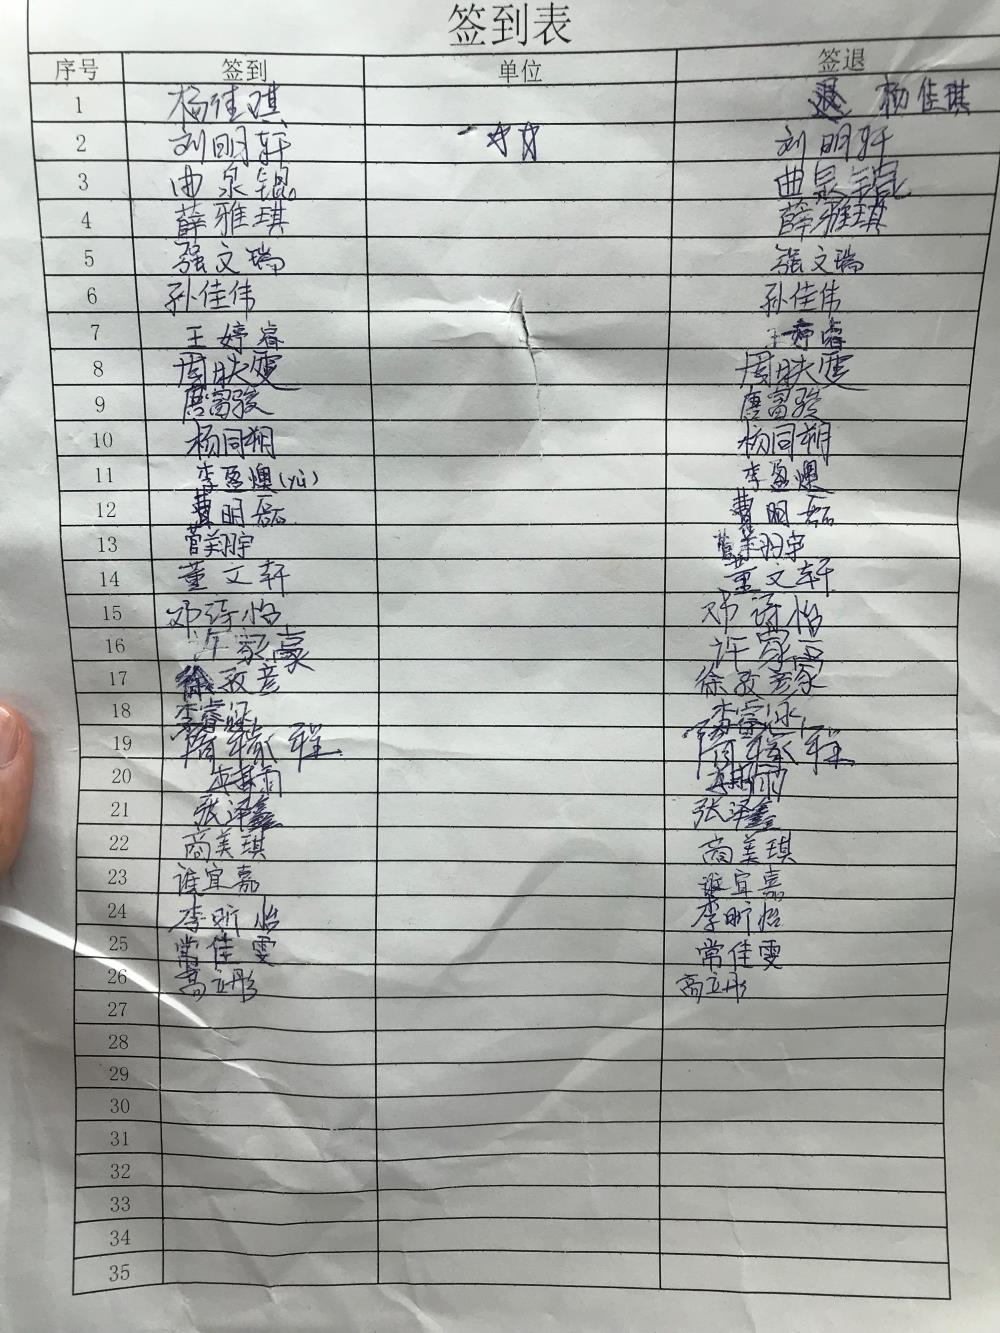 签到表
序号 签到 单位 签退
1 杨佳琪 杨佳琪
2 刘明轩 刘明轩
3 曲泉锟 曲泉锟
4 薛雅琪 薛雅琪
5 张文瑞 张文瑞
6 孙佳伟 孙佳伟
7 王婷睿 王婷睿
8 周雯 周雯
9 唐富骏 唐富骏
10 杨同朔 杨同朔
11 李盈燠(yù) 李盈燠
12 费明磊 费明磊
13 菅美羽宇 菅美羽宇
14 董文轩 董文轩
15 邓诗怡 邓诗怡
16 许家豪 许家豪
17 徐敬彦 徐敬彦
18 李睿泳 李睿泳
19 程 程
20 雨 雨
21 张泽鑫 张泽鑫
22 商美琪 商美琪
23 谯宜嘉 谯宜嘉
24 李昕怡 李昕怡
25 常佳雯 常佳雯
26 高立彤 高立彤
27
28
29
30
31
32
33
34
35